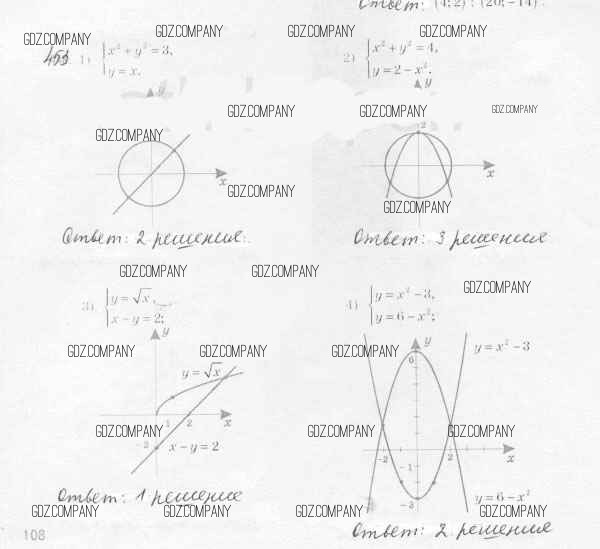 Ответ: (4; 2); (20; -14).
453. 1) { x² + y² = 3,
y = x.
2) { x² + y² = 4,
y = 2 - x².
GDZ.COMPANY
GDZ.COMPANY
GDZ.COMPANY
GDZ.COMPANY
y
y
GDZ.COMPANY
GDZ.COMPANY
GDZ.COMPANY
GDZ.COMPANY
2
x
x
GDZ.COMPANY
GDZ.COMPANY
Ответ: 2 решения.
Ответ: 3 решения
GDZ.COMPANY
GDZ.COMPANY
GDZ.COMPANY
3) { y = √x,
x - y = 2;
4) { y = x² - 3,
y = 6 - x²;
y
y
GDZ.COMPANY
GDZ.COMPANY
GDZ.COMPANY
y = x² - 3
6
y = √x
1 2 x
GDZ.COMPANY
GDZ.COMPANY
GDZ.COMPANY
-2
x - y = 2
-2
-1
2
x
Ответ: 1 решение
-3
y = 6 - x²
GDZ.COMPANY
GDZ.COMPANY
GDZ.COMPANY
GDZ.COMPANY
Ответ: 2 решения
108